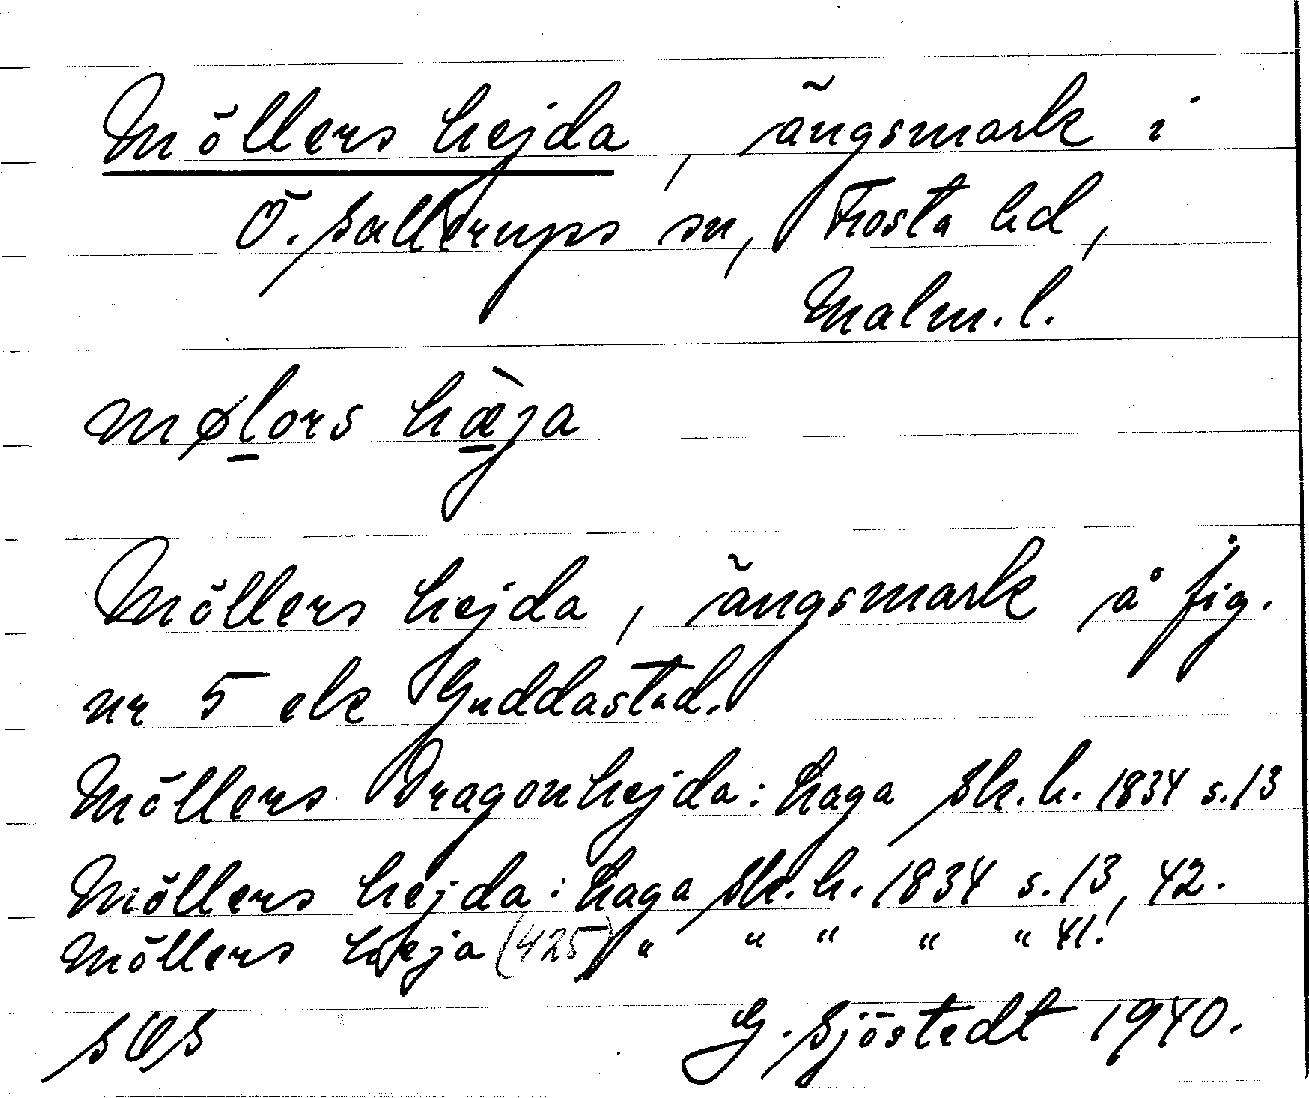 Möllers hejda, ängsmark i
Ö. Sallerups sn, Frosta hd,
Malm. l.
mølors hæ̀ja
Möllers hejda, ängsmark å fig.
nr 5 ek Guddastad.
Möllers Dragonhejda: Laga Sk. h. 1834 s. 13
Möllers hejda: Laga Sk. h. 1834 s. 13, 42.
Möllers heja (425) " " " " " 41!
SOS G. Sjöstedt 1940.